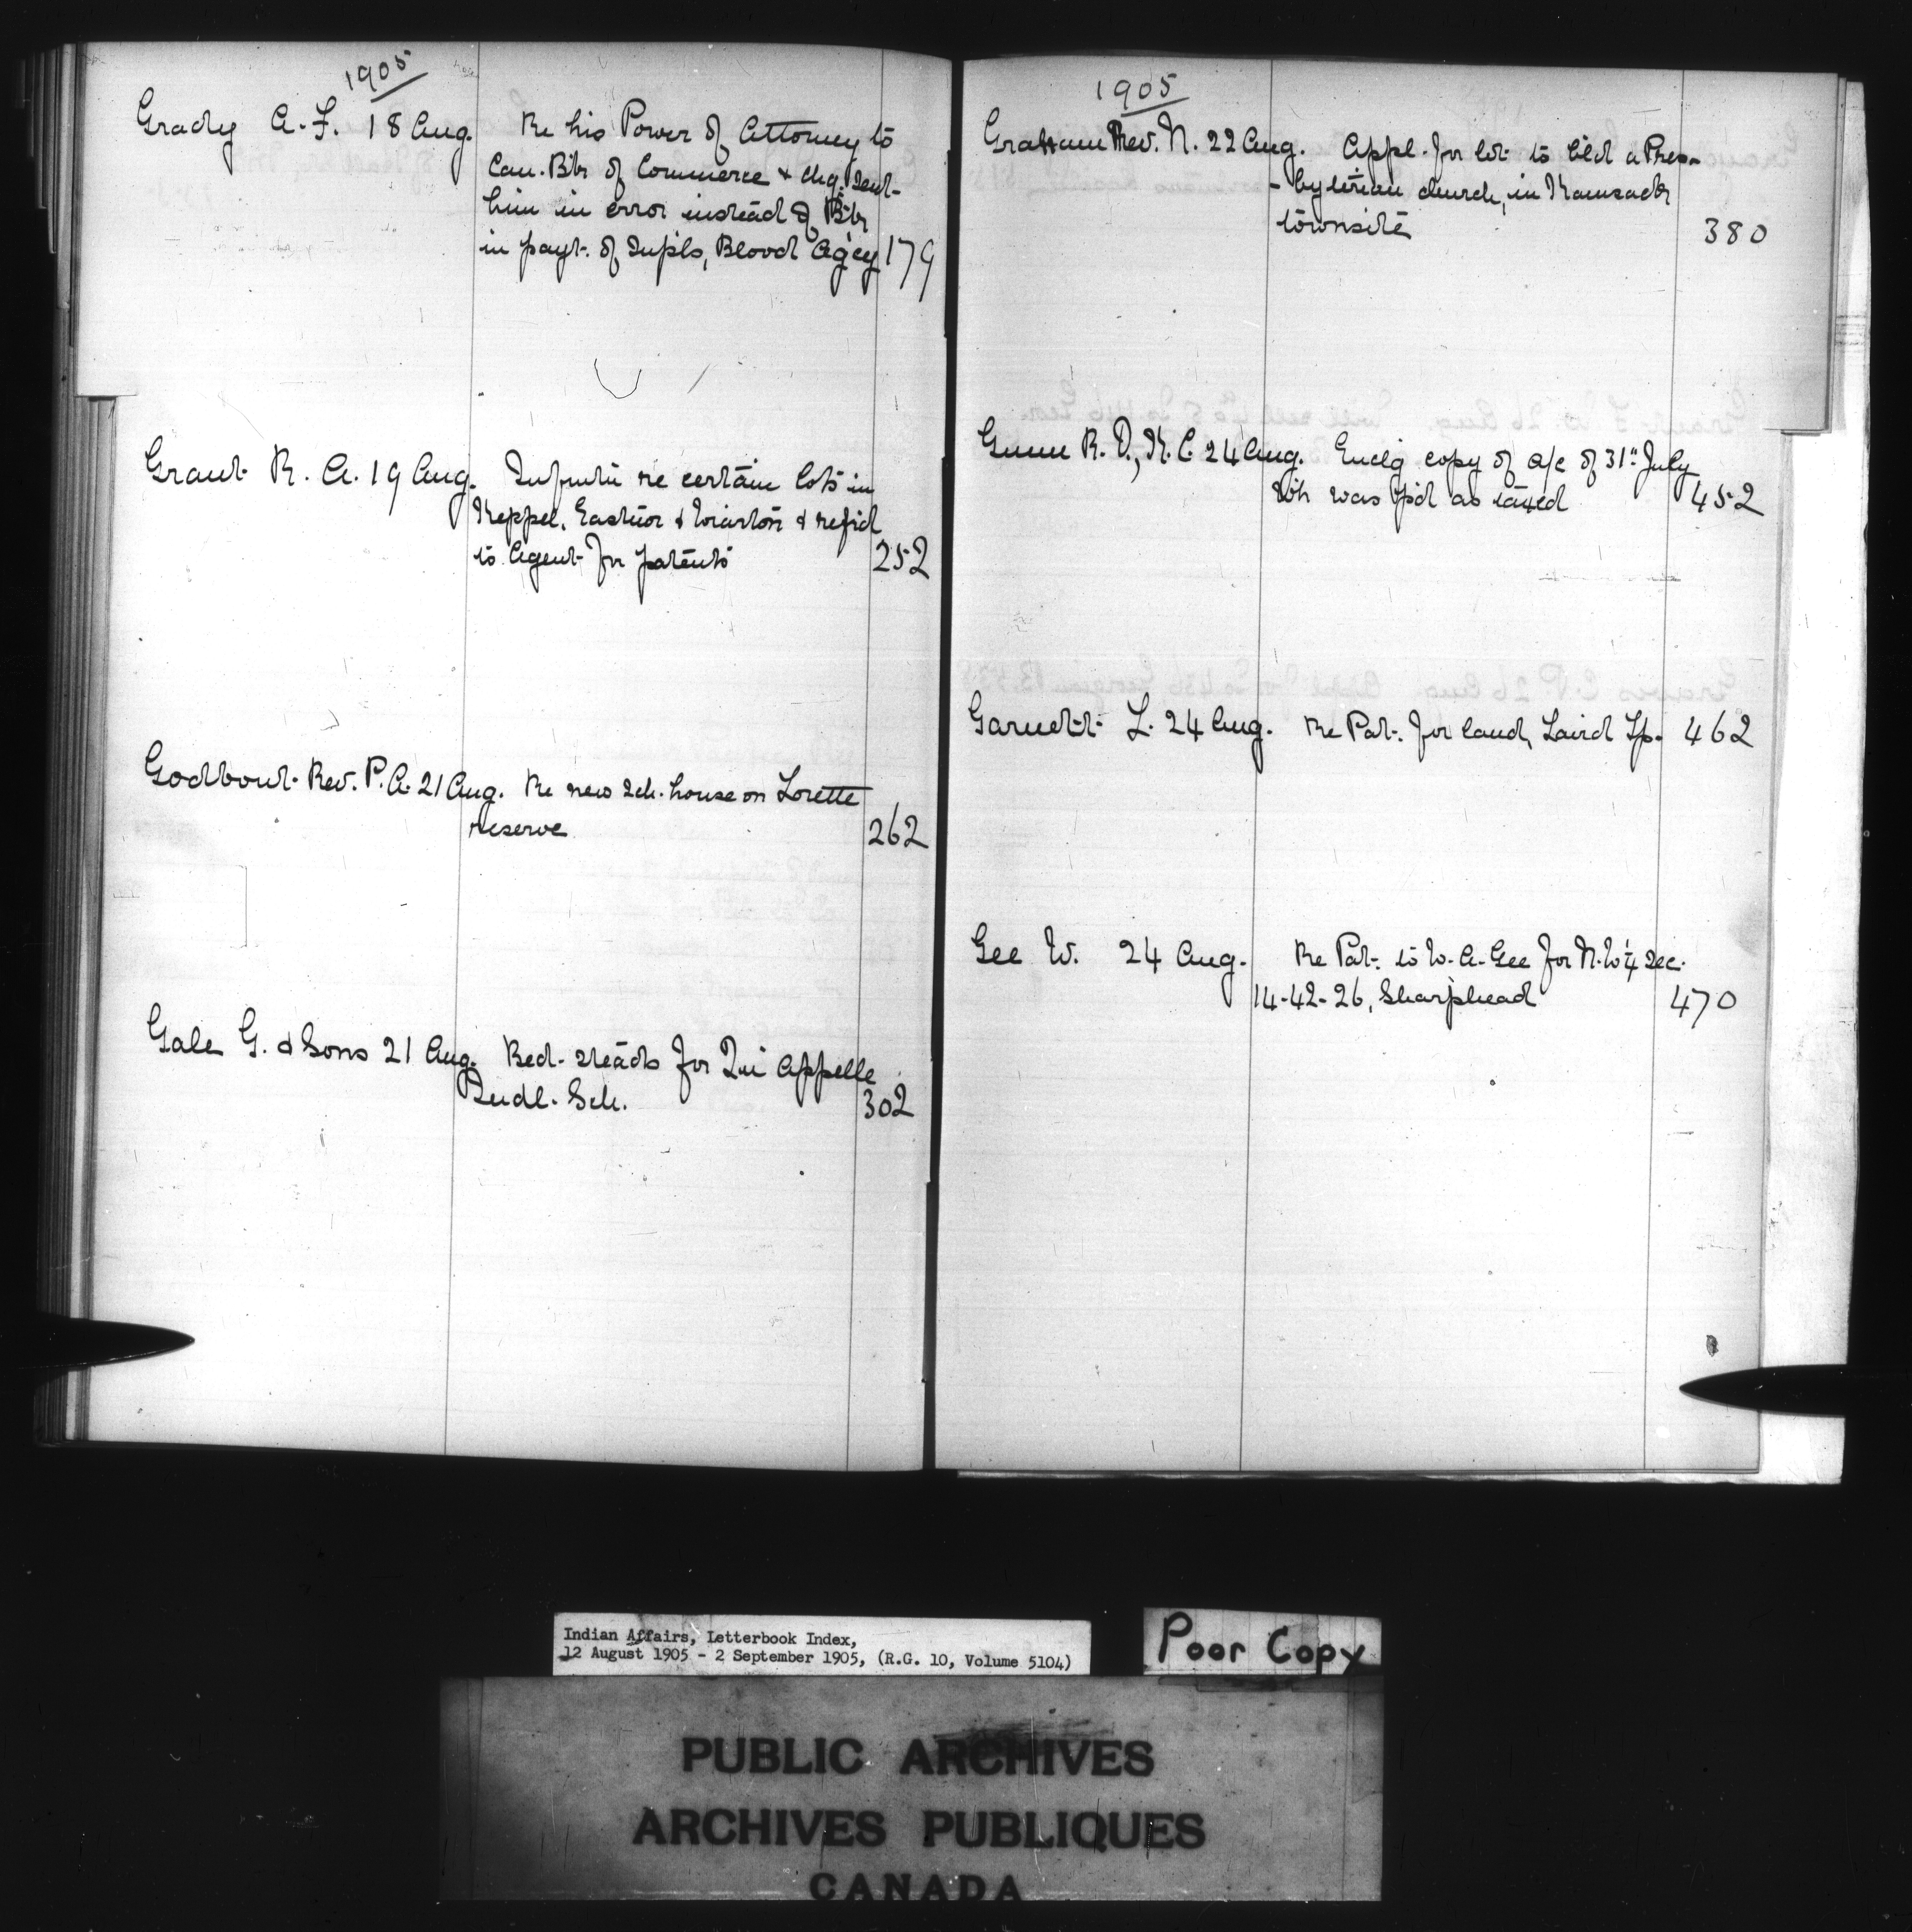 1905
Grady A. F. 18 Aug. Re his Power of Attorney to
Can. Bk of Commerce & chq. sent
him in error instead of Bk
in payt. of supls, Blood Agcy 179
Grant R. A. 19 Aug. Infmtn re certain lots in
Keppel, Eastnor & Wiarton & refrd
to Agent for patents 252
Godbout Rev. P. A. 21 Aug. Re new sch. house on Lorette
reserve 262
Gale G. & Sons 21 Aug. Bed-steads for Qu'Appelle
Indl. Sch. 302
1905
Graham Rev. N. 22 Aug. Appl. for lot to bld a Pres-
-byterian church, in Kamsack
townsite 380
Gunn R. D., K.C. 24 Aug. Enclg copy of a/c of 31st July
wh was pd as taxed 452
Garnett L. 24 Aug. Re Pat. for land, Laird Tp. 462
Gee W. 24 Aug. Re Pat. to W. A. Gee for N.W 1/4 Sec.
14-42-26, Sharphead 470
Indian Affairs, Letterbook Index,
12 August 1905 - 2 September 1905, (R.G. 10, Volume 5104)
Poor Copy
PUBLIC ARCHIVES
ARCHIVES PUBLIQUES
CANADA